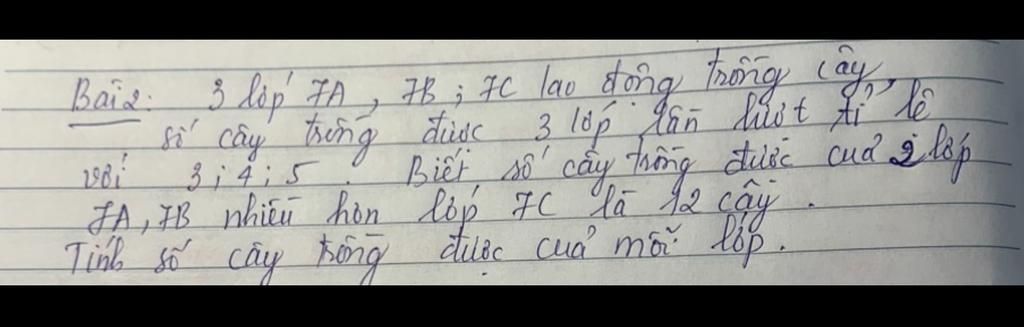 Bài 2: 3 lớp 7A, 7B; 7C lao động trồng cây,
số cây trồng được 3 lớp lần lượt tỉ lệ
với 3; 4; 5. Biết số cây trồng được của 2 lớp
7A, 7B nhiều hơn lớp 7C là 12 cây.
Tính số cây trồng được của mỗi lớp.